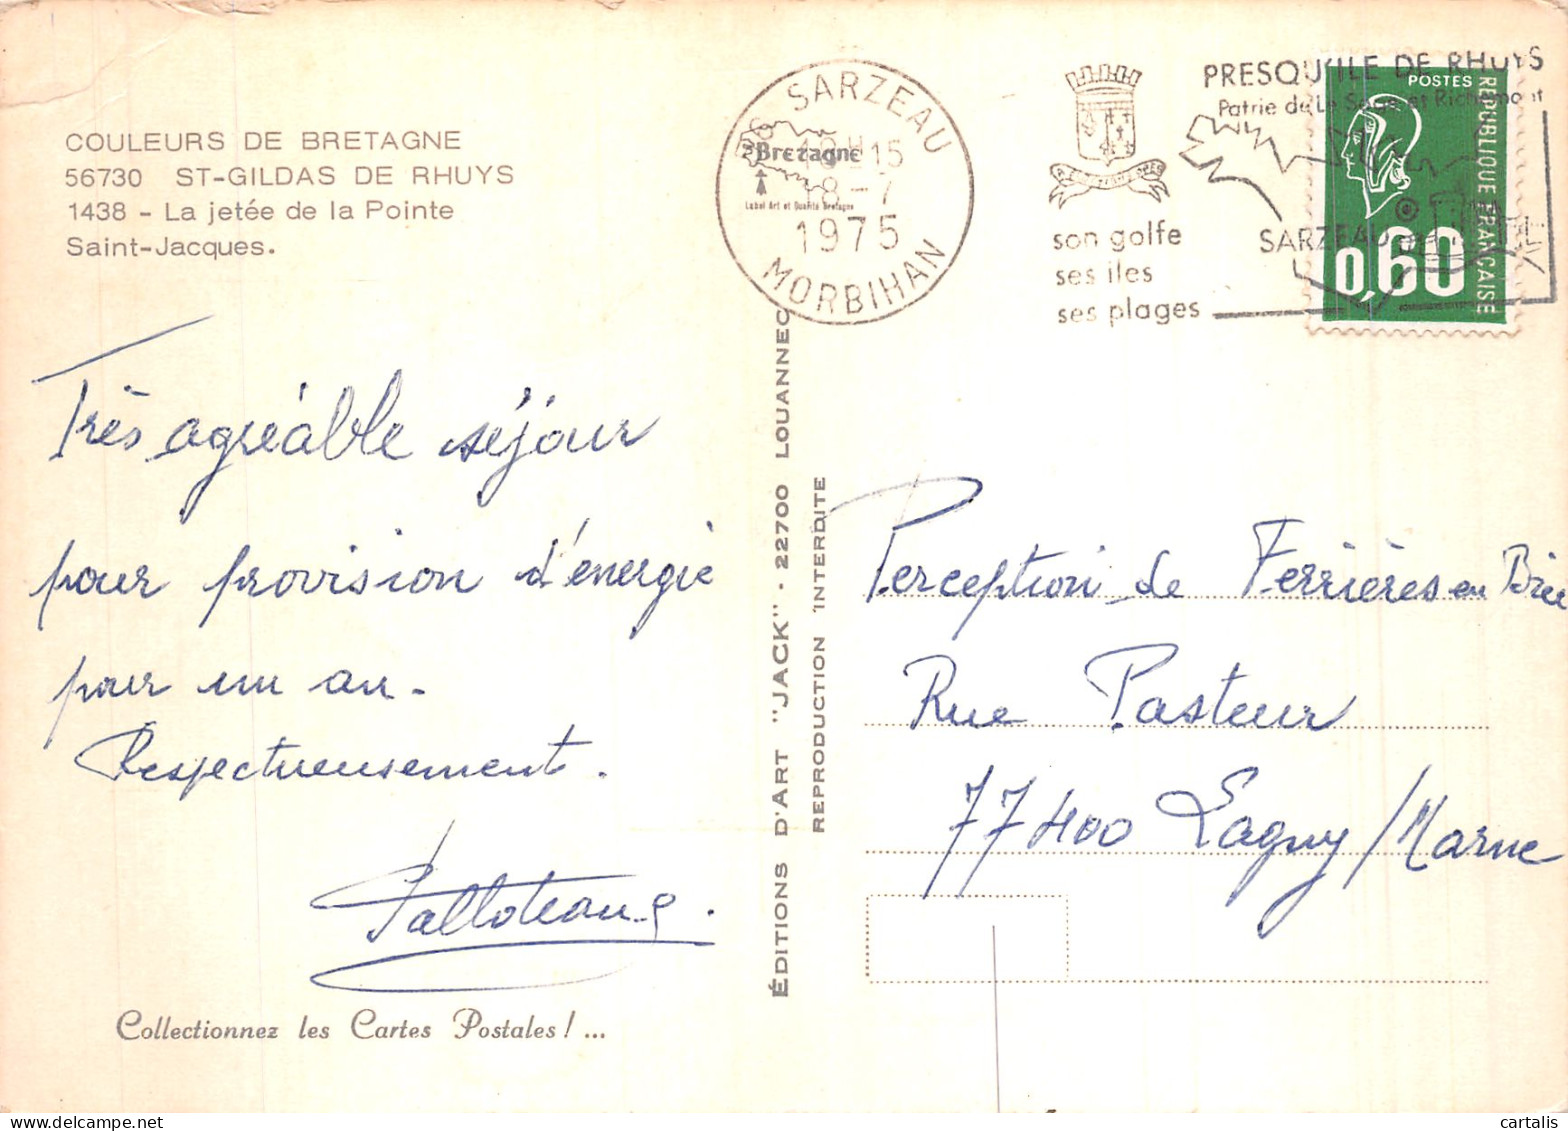 COULEURS DE BRETAGNE
56730 ST-GILDAS DE RHUYS
1438 - La jetée de la Pointe
Saint-Jacques.
Très agréable séjour
pour provision d'énergie
pour un an.
Respectueusement.
Collectionnez les Cartes Postales ! ...
ÉDITIONS D'ART "JACK" - 22700 LOUANNEC
REPRODUCTION INTERDITE
SARZEAU
15
8-7
1975
MORBIHAN
Bretagne
Label Art et Qualité Bretagne
son golfe
ses iles
ses plages
PRESQU'ILE DE RHUYS
Patrie de Le Sage et Richemont
SARZEAU
POSTES
REPUBLIQUE FRANCAISE
0,60
Perception de Ferrières en Brie
Rue Pasteur
77400 Lagny/Marne
cartalis